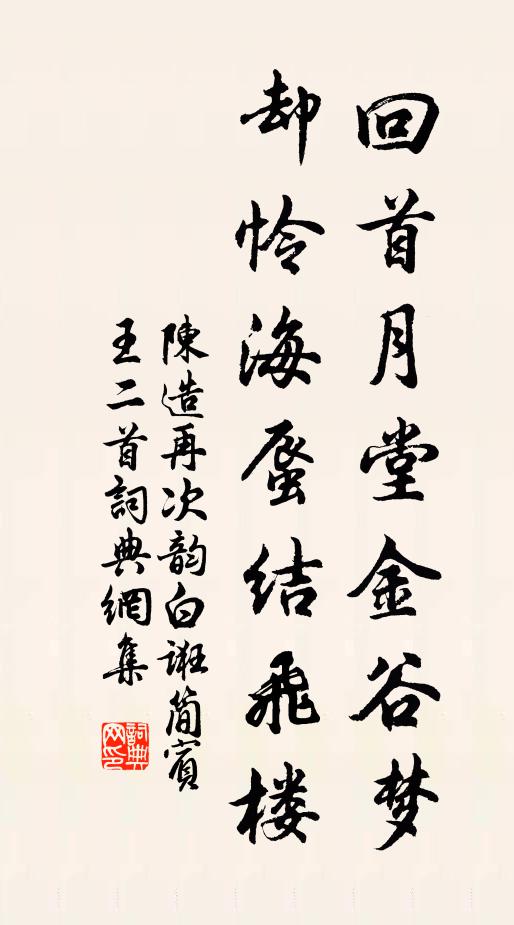 回首月堂金谷梦
却怜海蜃结飛楼
陳造再次韵自诳简賓
王二首詞典網集
詞典網印